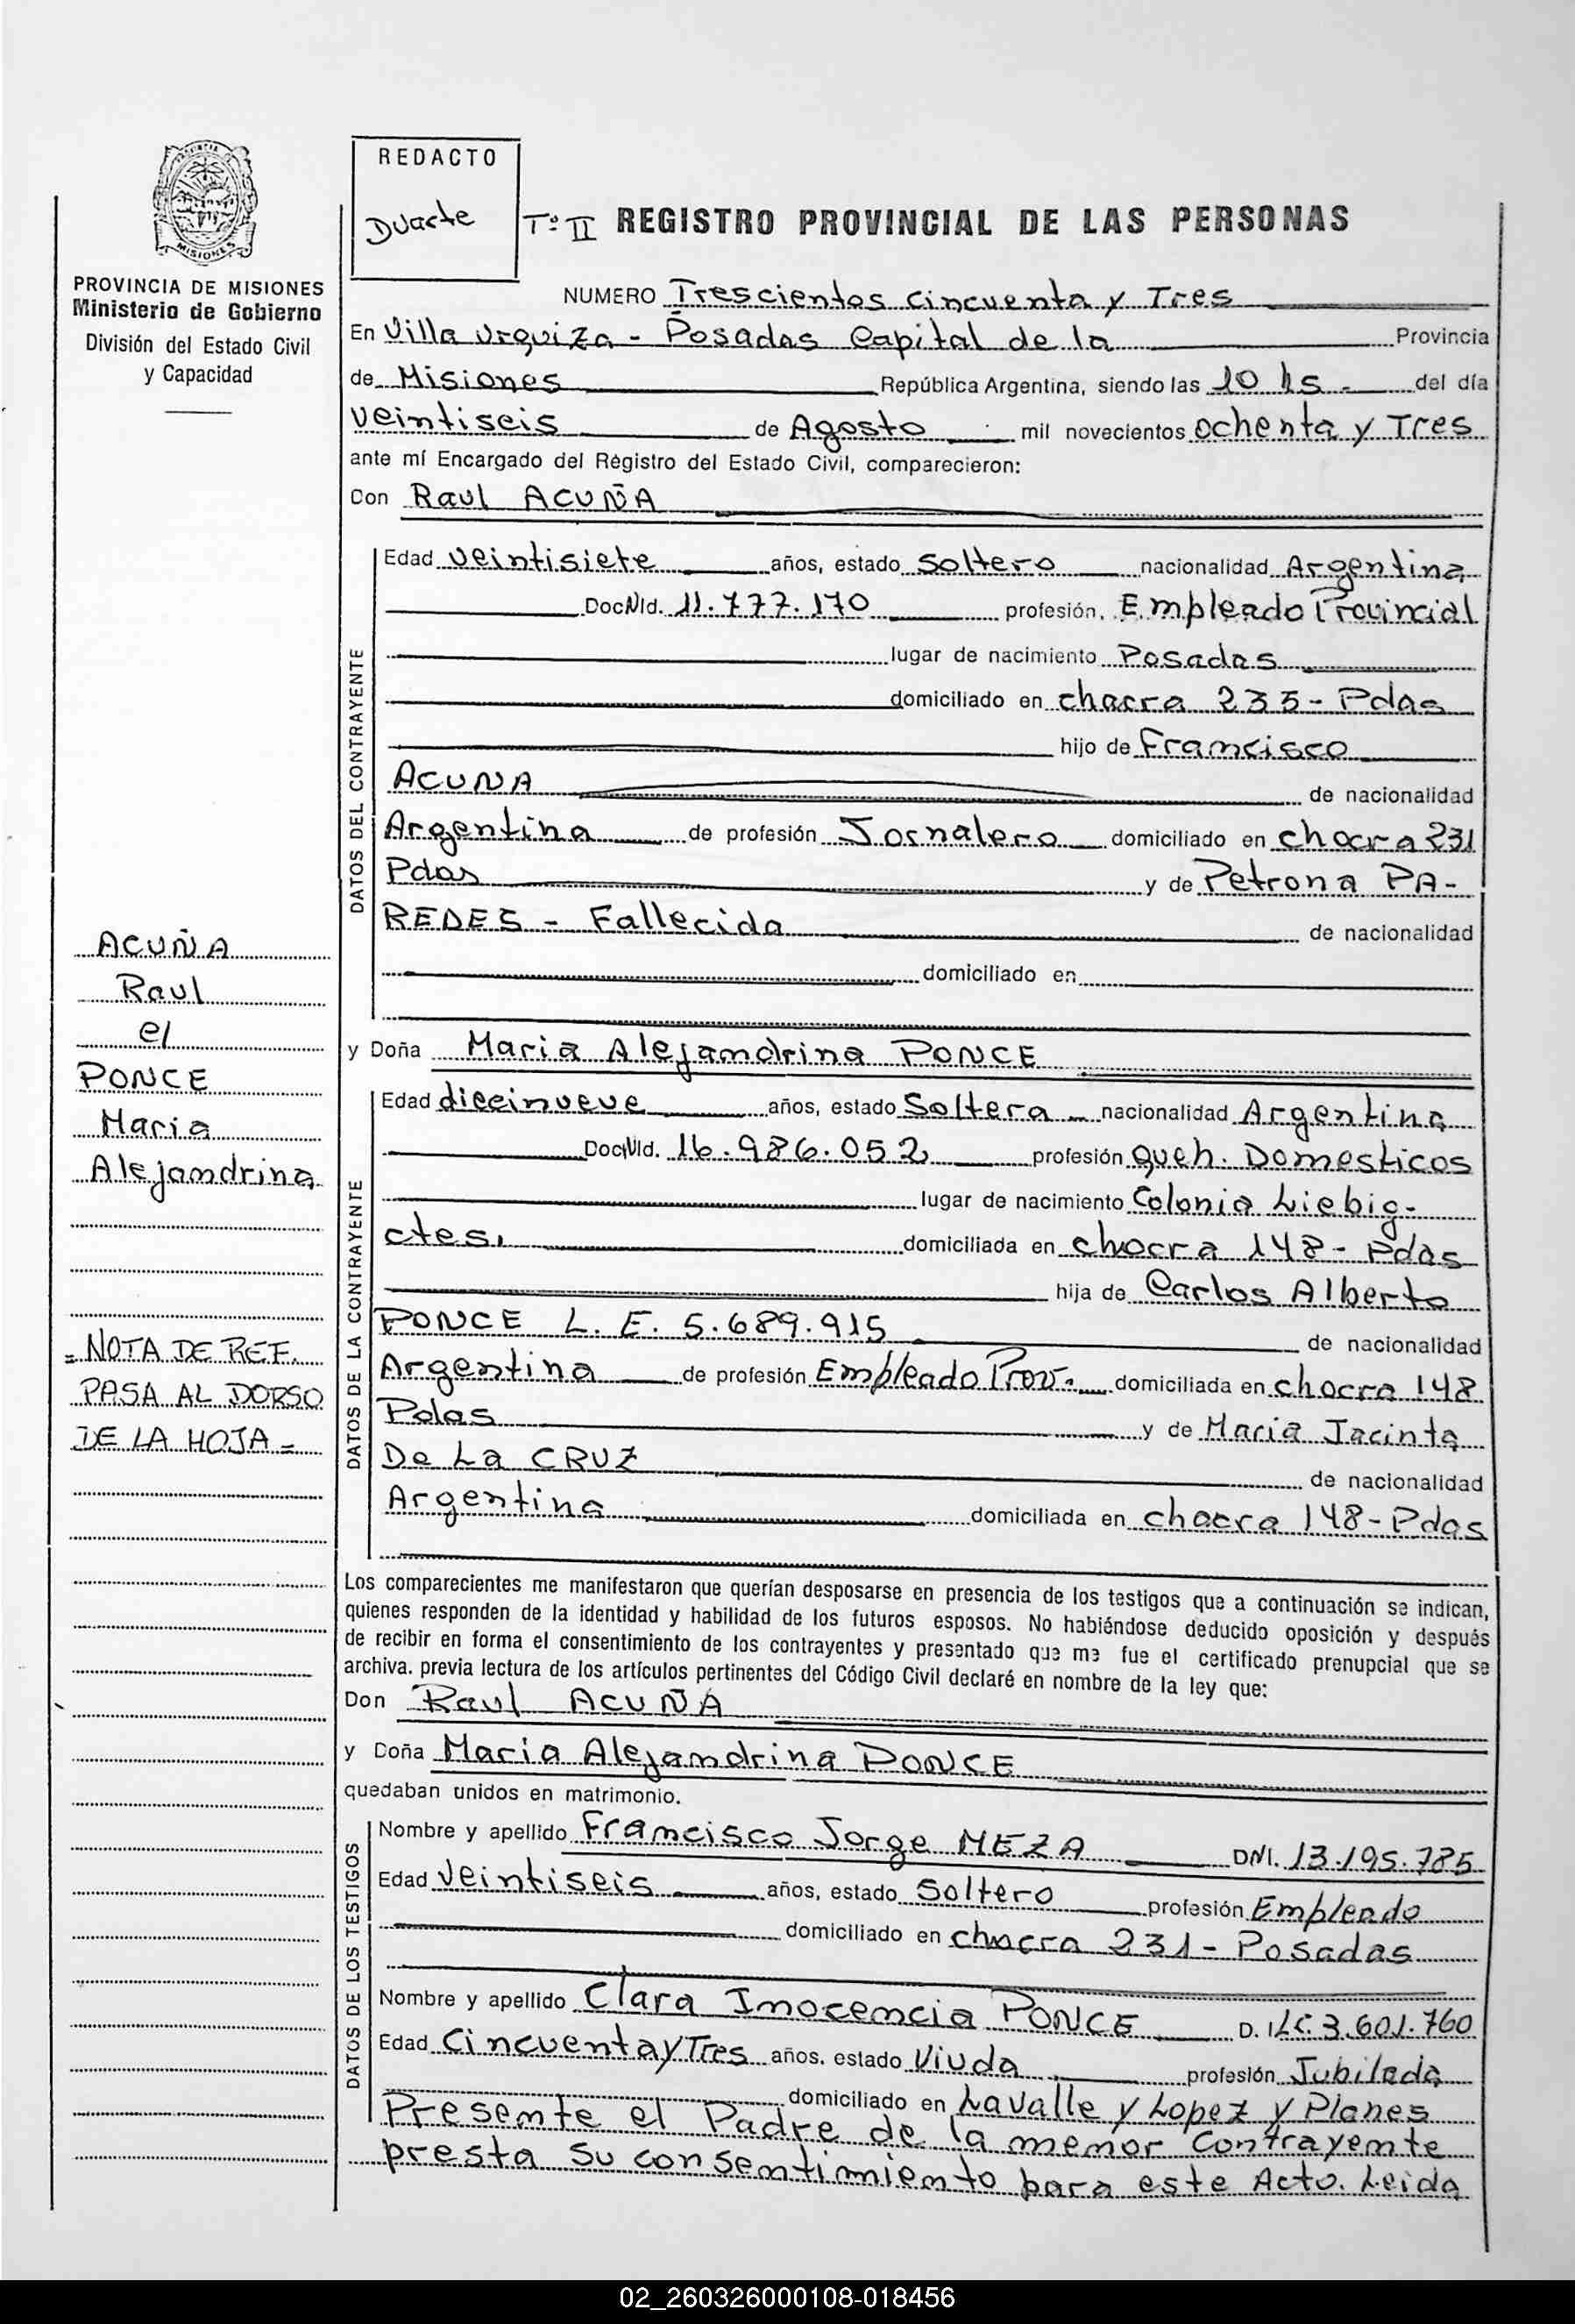 REDACTO
Duarte
Tº II REGISTRO PROVINCIAL DE LAS PERSONAS
MISIONES
PROVINCIA DE MISIONES
Ministerio de Gobierno
División del Estado Civil
y Capacidad
NUMERO Trescientos cincuenta y Tres
En Villa Urquiza - Posadas Capital de la Provincia
de Misiones República Argentina, siendo las 10 hs - del día
veintiseis de Agosto mil novecientos ochenta y Tres
ante mí Encargado del Régistro del Estado Civil, comparecieron:
Con Raul ACUÑA
DATOS DEL CONTRAYENTE
Edad veintisiete años, estado Soltero nacionalidad Argentina
DocNId. 11.777.170 profesión, Empleado Provincial
lugar de nacimiento Posadas
domiciliado en chacra 235 - Pdas
hijo de Francisco
ACUNA de nacionalidad
Argentina de profesión Jornalero domiciliado en chacra 231
Pdas y de Petrona PA-
REDES - Fallecida de nacionalidad
domiciliado en
ACUÑA
Raul
el
PONCE
Maria
Alejandrina
y Doña Maria Alejandrina PONCE
DATOS DE LA CONTRAYENTE
Edad diecinueve años, estado Soltera - nacionalidad Argentina
DocNId. 16.986.052 profesión Queh. Domesticos
lugar de nacimiento Colonia Liebig-
ctes. domiciliada en chacra 148 - Pdas
hija de Carlos Alberto
PONCE L. E. 5.689.915 de nacionalidad
Argentina de profesión Empleado Prov. domiciliada en chacra 148
Pdas y de Maria Jacinta
De La CRUZ de nacionalidad
Argentina domiciliada en chacra 148 - Pdas
= NOTA DE REF.
PASA AL DORSO
DE LA HOJA =
Los comparecientes me manifestaron que querían desposarse en presencia de los testigos que a continuación se indican,
quienes responden de la identidad y habilidad de los futuros esposos. No habiéndose deducido oposición y después
de recibir en forma el consentimiento de los contrayentes y presentado que me fue el certificado prenupcial que se
archiva. previa lectura de los artículos pertinentes del Código Civil declaré en nombre de la ley que:
Don Raul ACUÑA
y Doña Maria Alejandrina PONCE
quedaban unidos en matrimonio.
DATOS DE LOS TESTIGOS
Nombre y apellido Francisco Jorge MEZA DNI. 13.195.785
Edad veintiseis años, estado Soltero profesión Empleado
domiciliado en chacra 231 - Posadas
Nombre y apellido Clara Inocencia PONCE D. I LC. 3.601.760
Edad Cincuenta y Tres años. estado Viuda profesión Jubilada
domiciliado en Lavalle y Lopez y Planes
Presente el Padre de la menor Contrayente
presta su consentimiento para este Acto. Leida
02_260326000108-018456